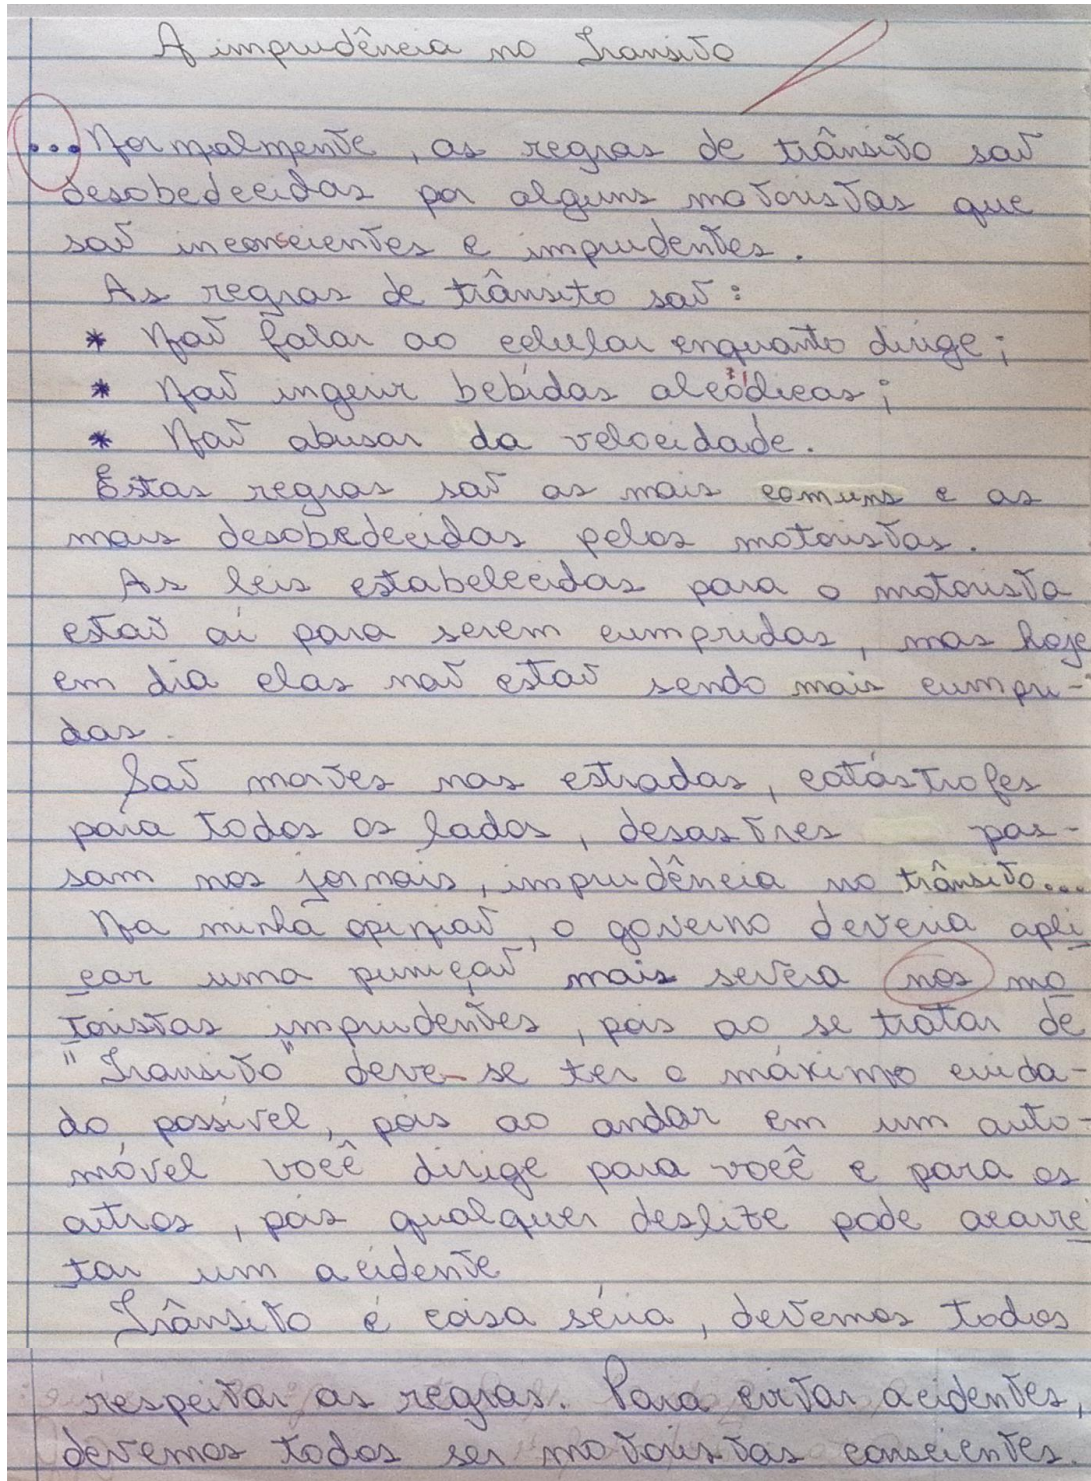 A imprudência no Transito
...Normalmente, as regras de trânsito saõ
desobedecidas por alguns motoristas que
saõ inconscientes e imprudentes.
As regras de trânsito saõ:
* Naõ falar ao celular enquanto dirige;
* Naõ ingerir bebídas alcoólicas;
* Naõ abusar da velocidade.
Estas regras saõ as mais comuns e as
mais desobedecidas pelos motoristas.
As leis estabelecidas para o motorista
estaõ aí para serem cumpridas, mas hoje
em dia elas naõ estaõ sendo mais cumpri-
das.
Saõ mortes nas estradas, catástrofes
para todos os lados, desastres pas-
sam nos jornais, imprudência no trânsito...
Na minha opiniaõ, o governo deveria apli
car uma puniçaõ mais severa nos mo
toristas imprudentes, pois ao se tratar de
"Transito" deve-se ter o máximo cuida-
do possível, pois ao andar em um auto-
móvel você dirige para você e para os
outros, pois qualquer deslize pode acarre
tar um acidente
Trânsito é coisa séria, devemos todos
respeitar as regras. Para evitar acidentes,
devemos todos ser motoristas conscientes.